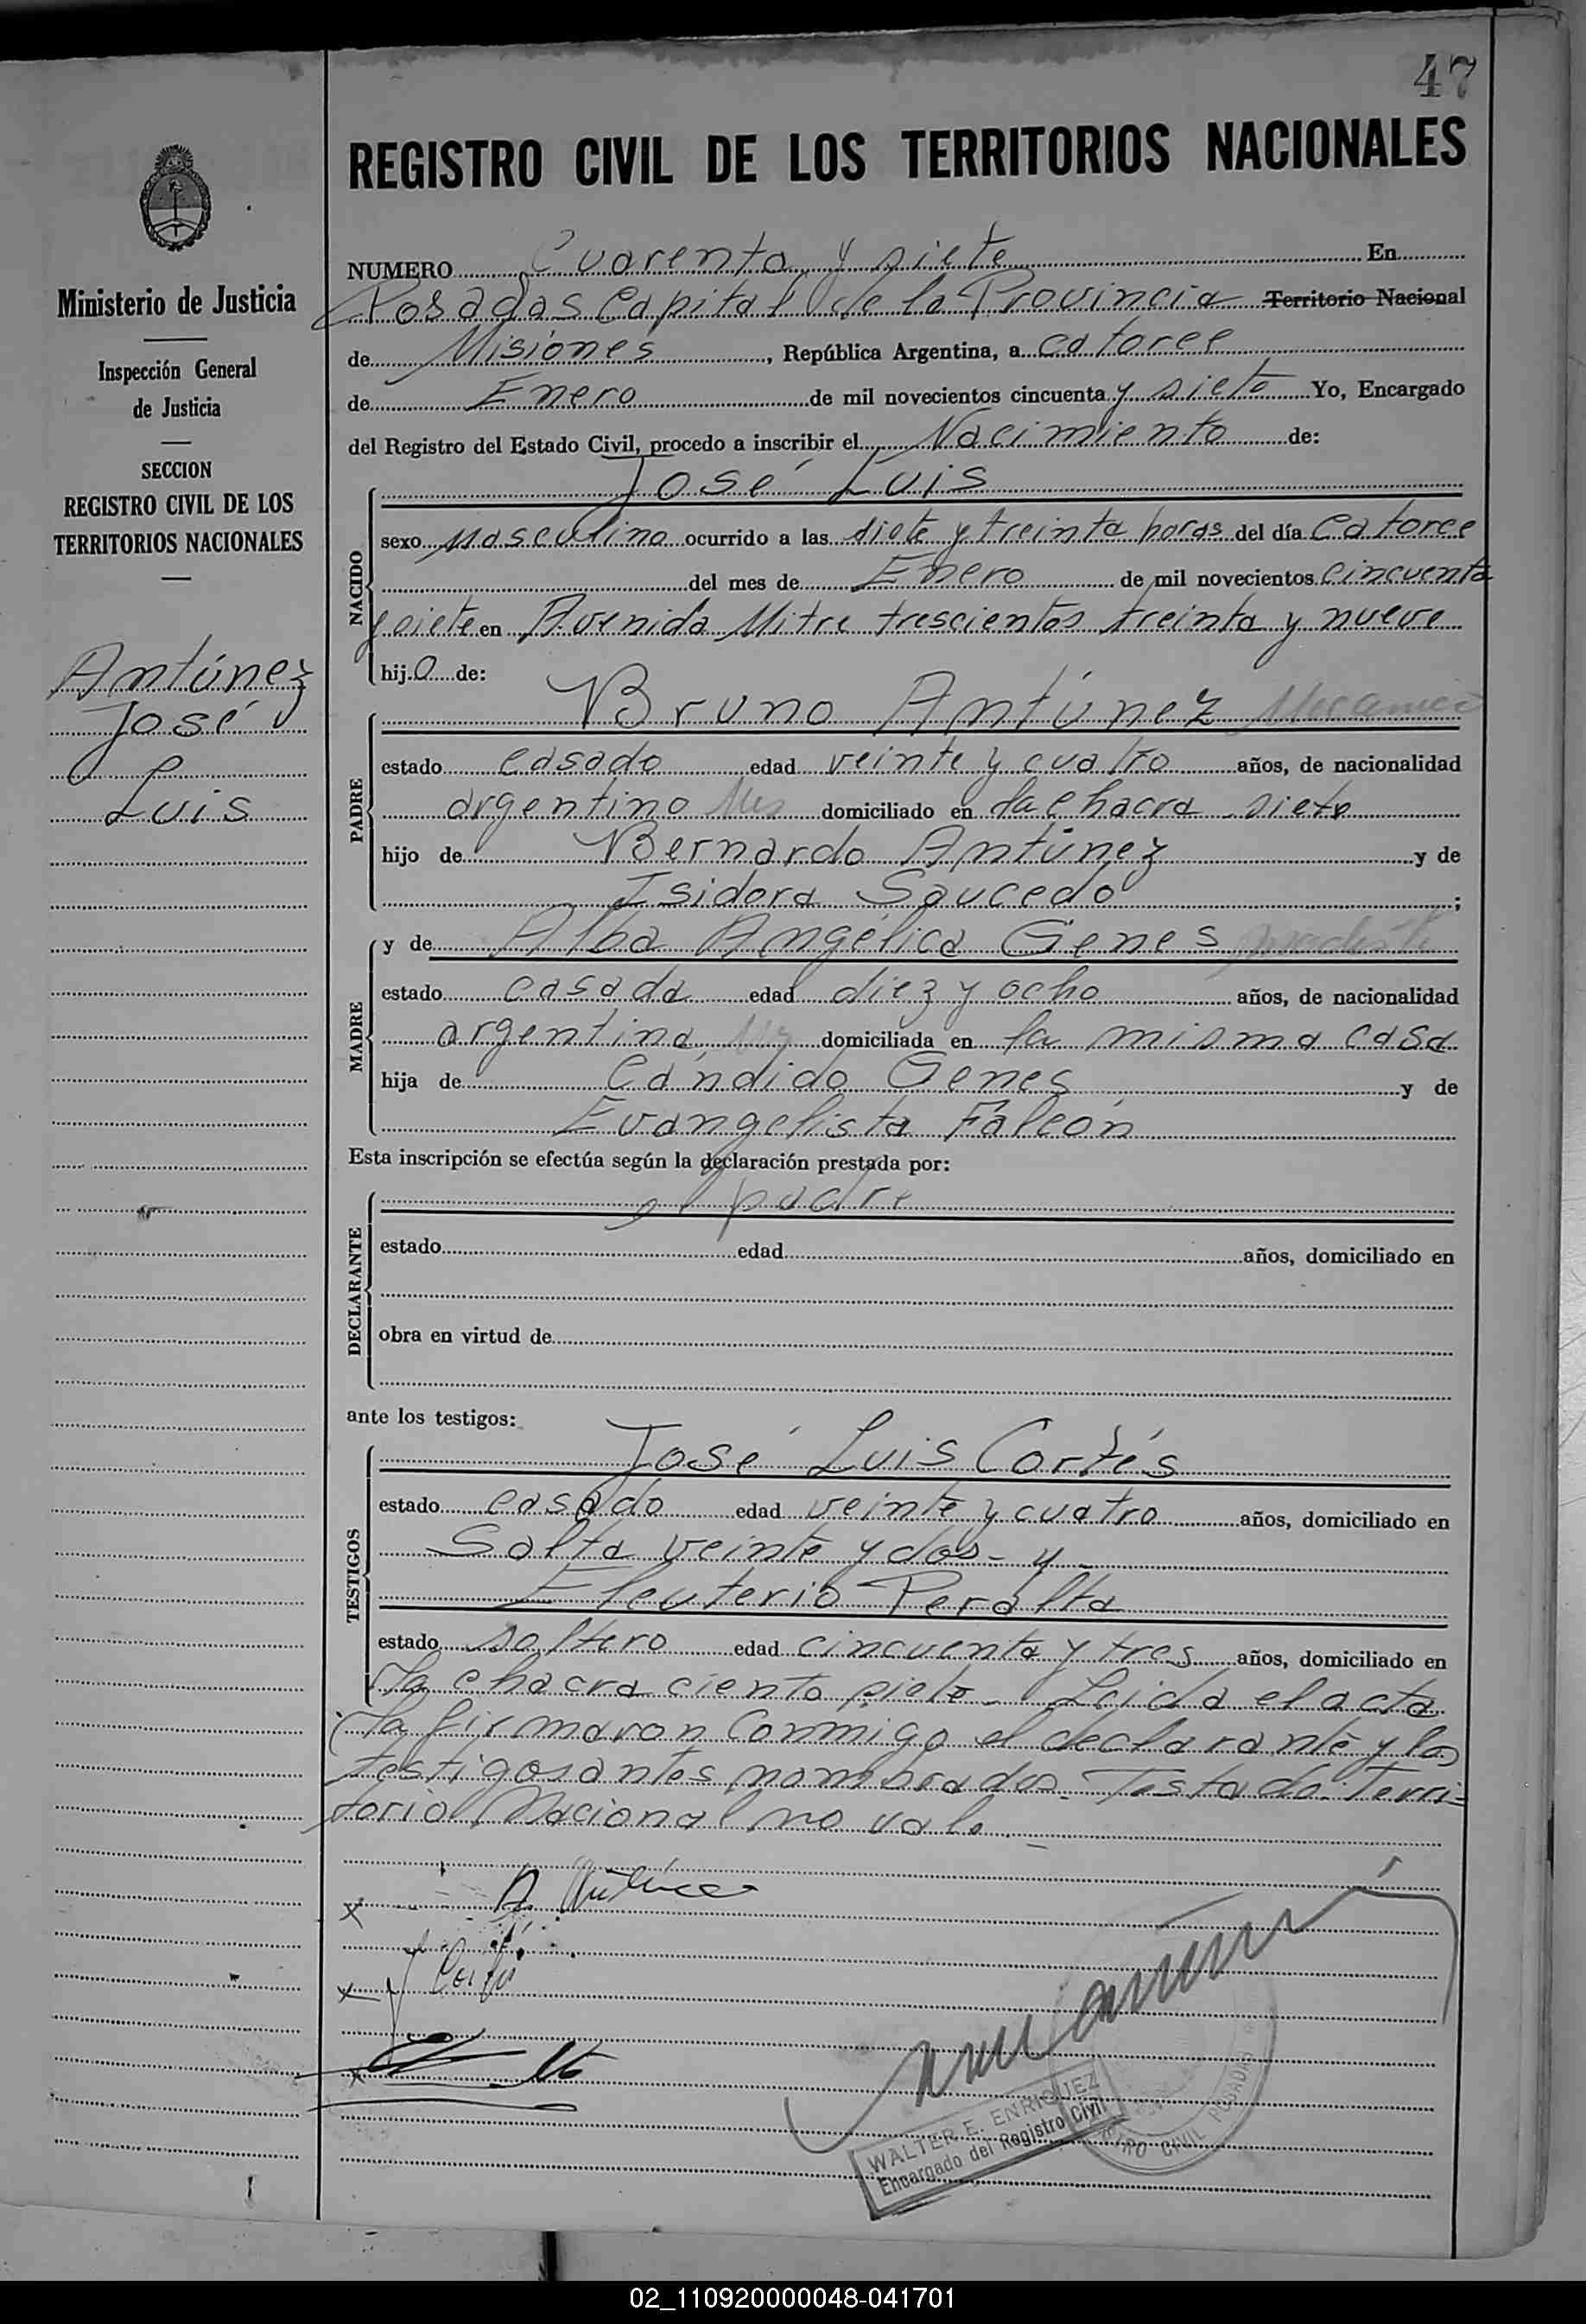 47
REGISTRO CIVIL DE LOS TERRITORIOS NACIONALES
Ministerio de Justicia
Inspección General
de Justicia
SECCION
REGISTRO CIVIL DE LOS
TERRITORIOS NACIONALES
Antúnez
José
Luis
NUMERO Cuarenta y siete En
Posadas Capital de la Provincia Territorio Nacional
de Misiones, República Argentina, a catorce
de Enero de mil novecientos cincuenta y siete Yo, Encargado
del Registro del Estado Civil, procedo a inscribir el Nacimiento de:
NACIDO
José Luis
sexo masculino ocurrido a las siete y treinta horas del día catorce
del mes de Enero de mil novecientos cincuenta
y siete en Avenida Mitre trescientos treinta y nueve
hijo de:
PADRE
Bruno Antúnez Mecanico
estado casado edad veinte y cuatro años, de nacionalidad
argentino Mis domiciliado en la chacra siete
hijo de Bernardo Antúnez y de
Isidora Saucedo;
MADRE
y de Alba Angélica Genes
estado casada edad diez y ocho años, de nacionalidad
argentina domiciliada en la misma casa
hija de Cándido Genes y de
Evangelista Falcón
Esta inscripción se efectúa según la declaración prestada por:
DECLARANTE
el padre
estado edad años, domiciliado en
obra en virtud de
ante los testigos:
TESTIGOS
José Luis Cortés
estado casado edad veinte y cuatro años, domiciliado en
Salta veinte y dos - y -
Eleuterio Peralta
estado soltero edad cincuenta y tres años, domiciliado en
la chacra ciento siete - Leida el acta
la firmaron conmigo el declarante y los
testigos antes nombrados - Testado: Terri-
torio Nacional no vale. -
WALTER E. ENRIQUEZ
Encargado del Registro Civil
CIVIL POSADAS
02_110920000048-041701